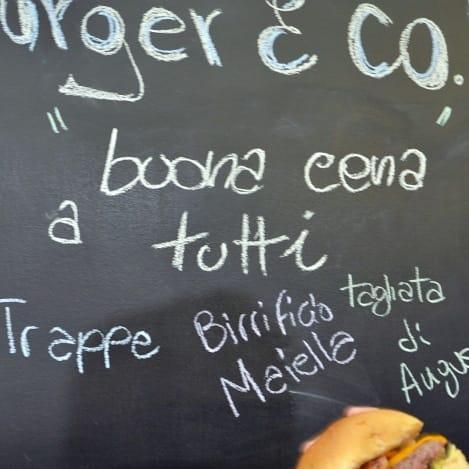 urger & Co.
"buona cena
a tutti"
Trappe
Birrificio
Maiella
tagliata
di